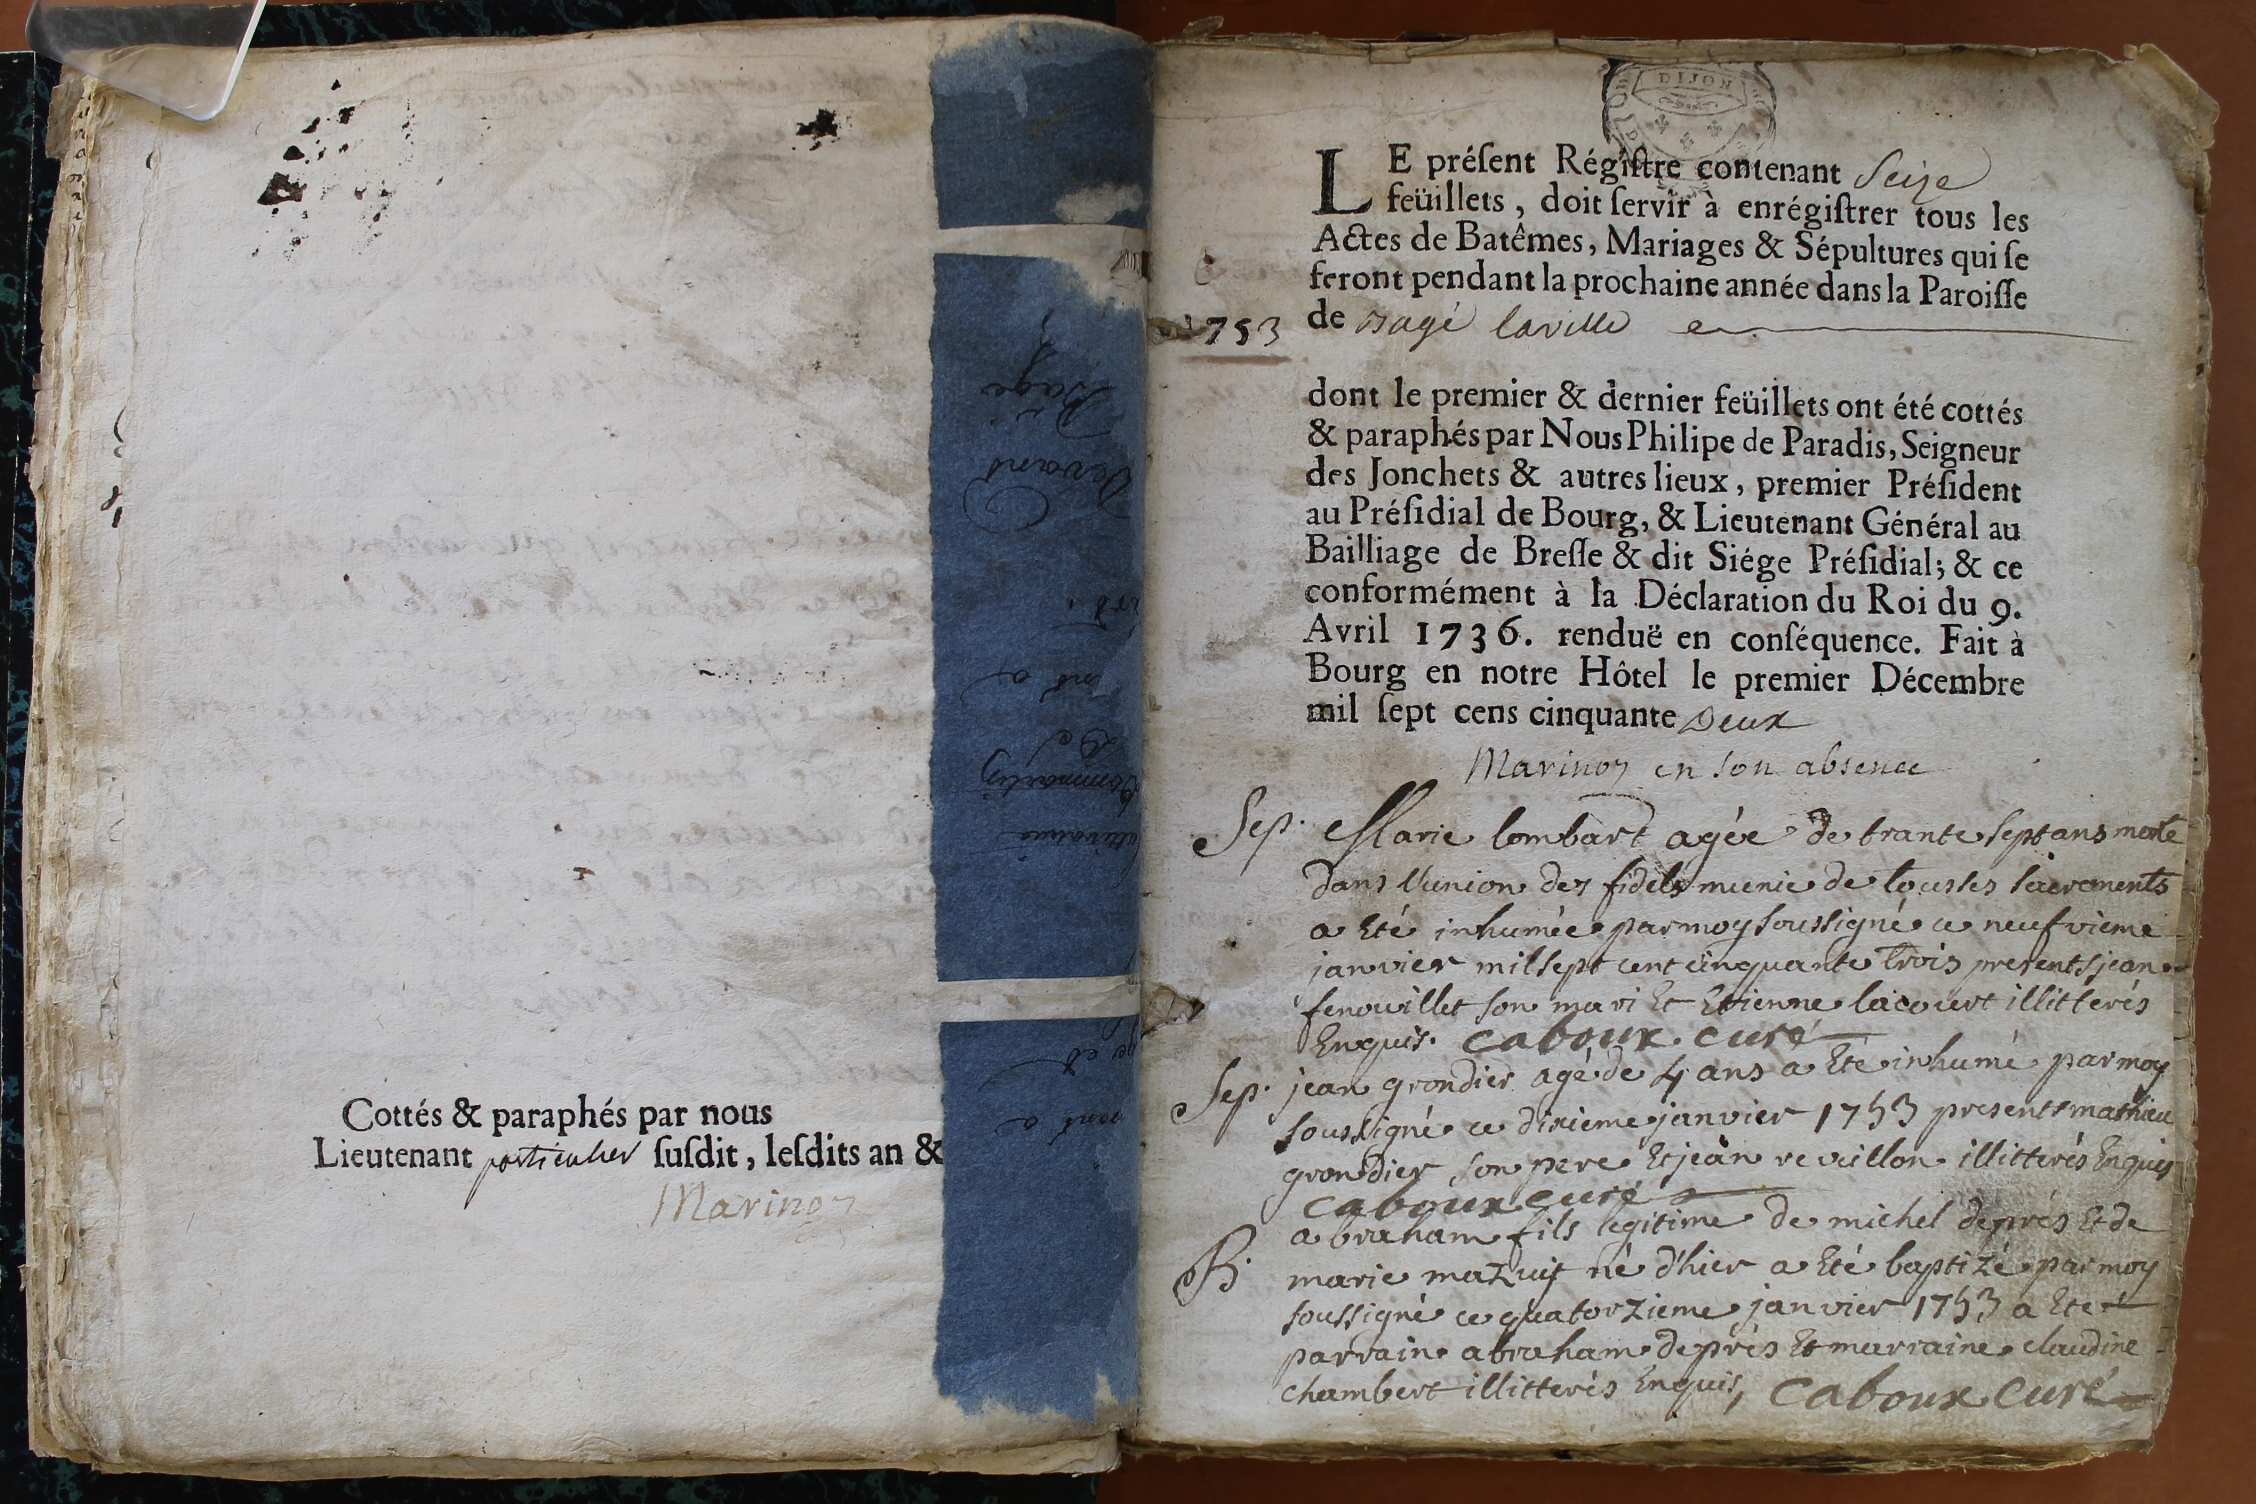 Cottés & paraphés par nous
Lieutenant particulier ſuſdit, leſdits an &
Marinon
Bagé
Devant
DIJON
LE préſent Régiſtre contenant Seize
feüillets, doit ſervir à enrégiſtrer tous les
Actes de Batêmes, Mariages & Sépultures qui ſe
feront pendant la prochaine année dans la Paroiſſe
1753
de Bagé laville
dont le premier & dernier feüillets ont été cottés
& paraphés par Nous Philipe de Paradis, Seigneur
des Jonchets & autres lieux, premier Préſident
au Préſidial de Bourg, & Lieutenant Général au
Bailliage de Breſſe & dit Siége Préſidial; & ce
conformément à la Déclaration du Roi du 9.
Avril 1736. renduë en conſéquence. Fait à
Bourg en notre Hôtel le premier Décembre
mil ſept cens cinquante Deux
Marinon en son absence
Sep. Marie lombart agée de trante sept ans morte
dans l'union des fidels munie de tous ses sacrements
a Eté inhumée par moy soussigné ce neufvieme
janvier mil sept cent cinquante trois presents jean
fenouillet son mari Et Etienne lacourt illitterés
Enquis. caboux curé
Sep. jean grondier agé de 4 ans a Eté inhumé par moy
soussigné ce dixieme janvier 1753 presents mathieu
grondier son pere Et jean reveillon illitterés Enquis
caboux curé
abraham fils legitime de michel deprés Et de
B. marie mazuy né d'hier a Eté baptizé par moy
soussigné ce quatorzieme janvier 1753 a Eté
parrain abraham deprés Et marraine claudine
chambert illitterés Enquis, caboux curé